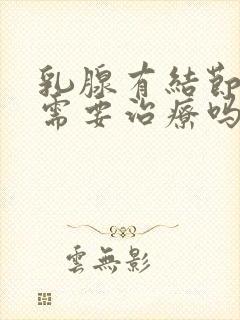 乳腺有結節
需要治療嗎
雲無影